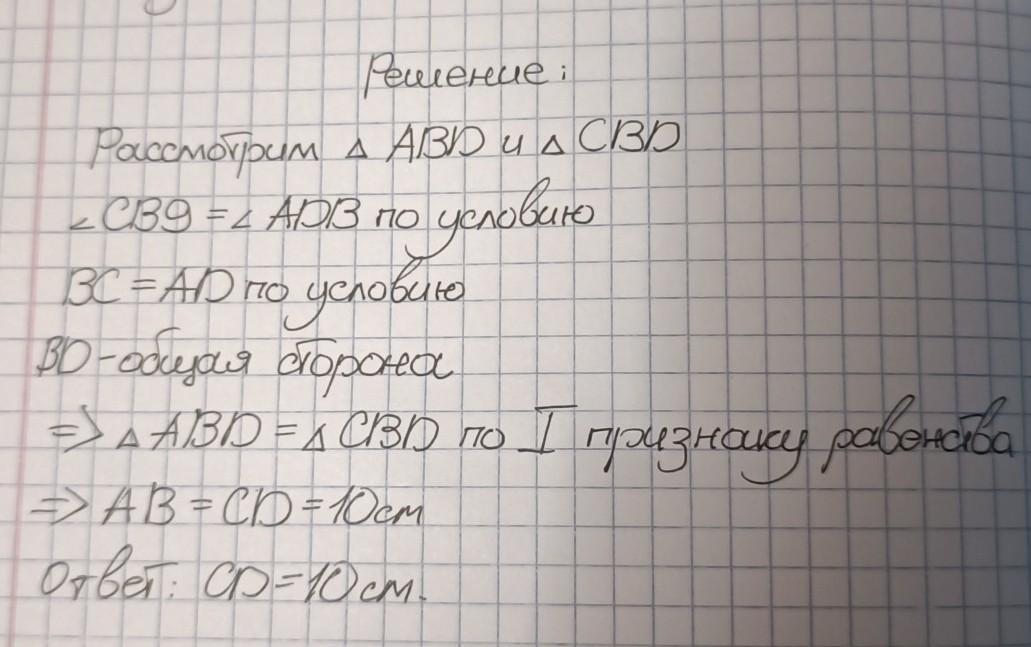 Решение:
Рассмотрим △ ABD и △ CBD
∠CB9 = ∠ ADB по условию
BC = AD по условию
BD - общая сторона
=> △ ABD = △ CBD по I признаку равенства
=> AB = CD = 10см
Ответ: CD = 10 см.